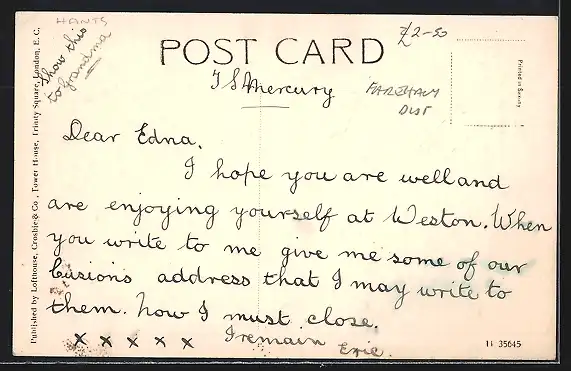 HANTS
Show this
to grandma
£2-50
POST CARD
T S Mercury
FAREHAM
DIST
Printed in Saxony.
Published by Lofthouse, Crosbie & Co, Tower House, Trinity Square, London, E. C.
Dear Edna.
I hope you are well and
are enjoying yourself at Weston. When
you write to me give me some of our
cusions address that I may write to
them. now I must close.
x x x x x I remain Eric.
11 35645